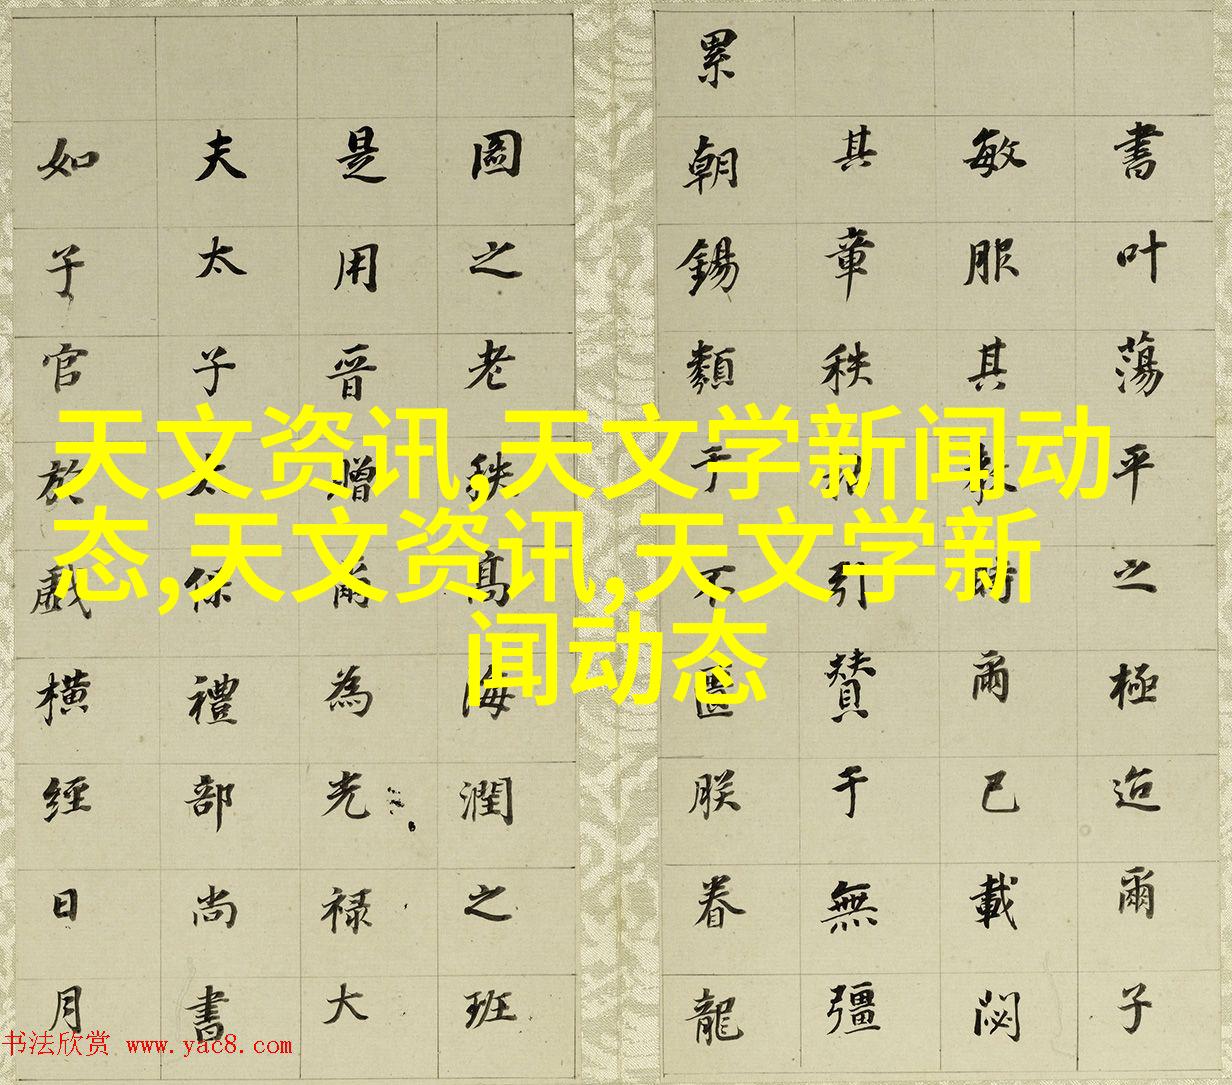 書叶蕩平之極迨爾子
敏服其教時爾已載閟
其章秩引贊于無彊
累朝錫類于不匱朕眷龍
圖之老秩高海潤之班
是用晉贈爾為光祿大
夫太子太保禮部尚書
如子官於戲橫經日月
天文资讯,天文学新闻动
态,天文资讯,天文学新
闻动态
书法欣赏 www.yac8.com